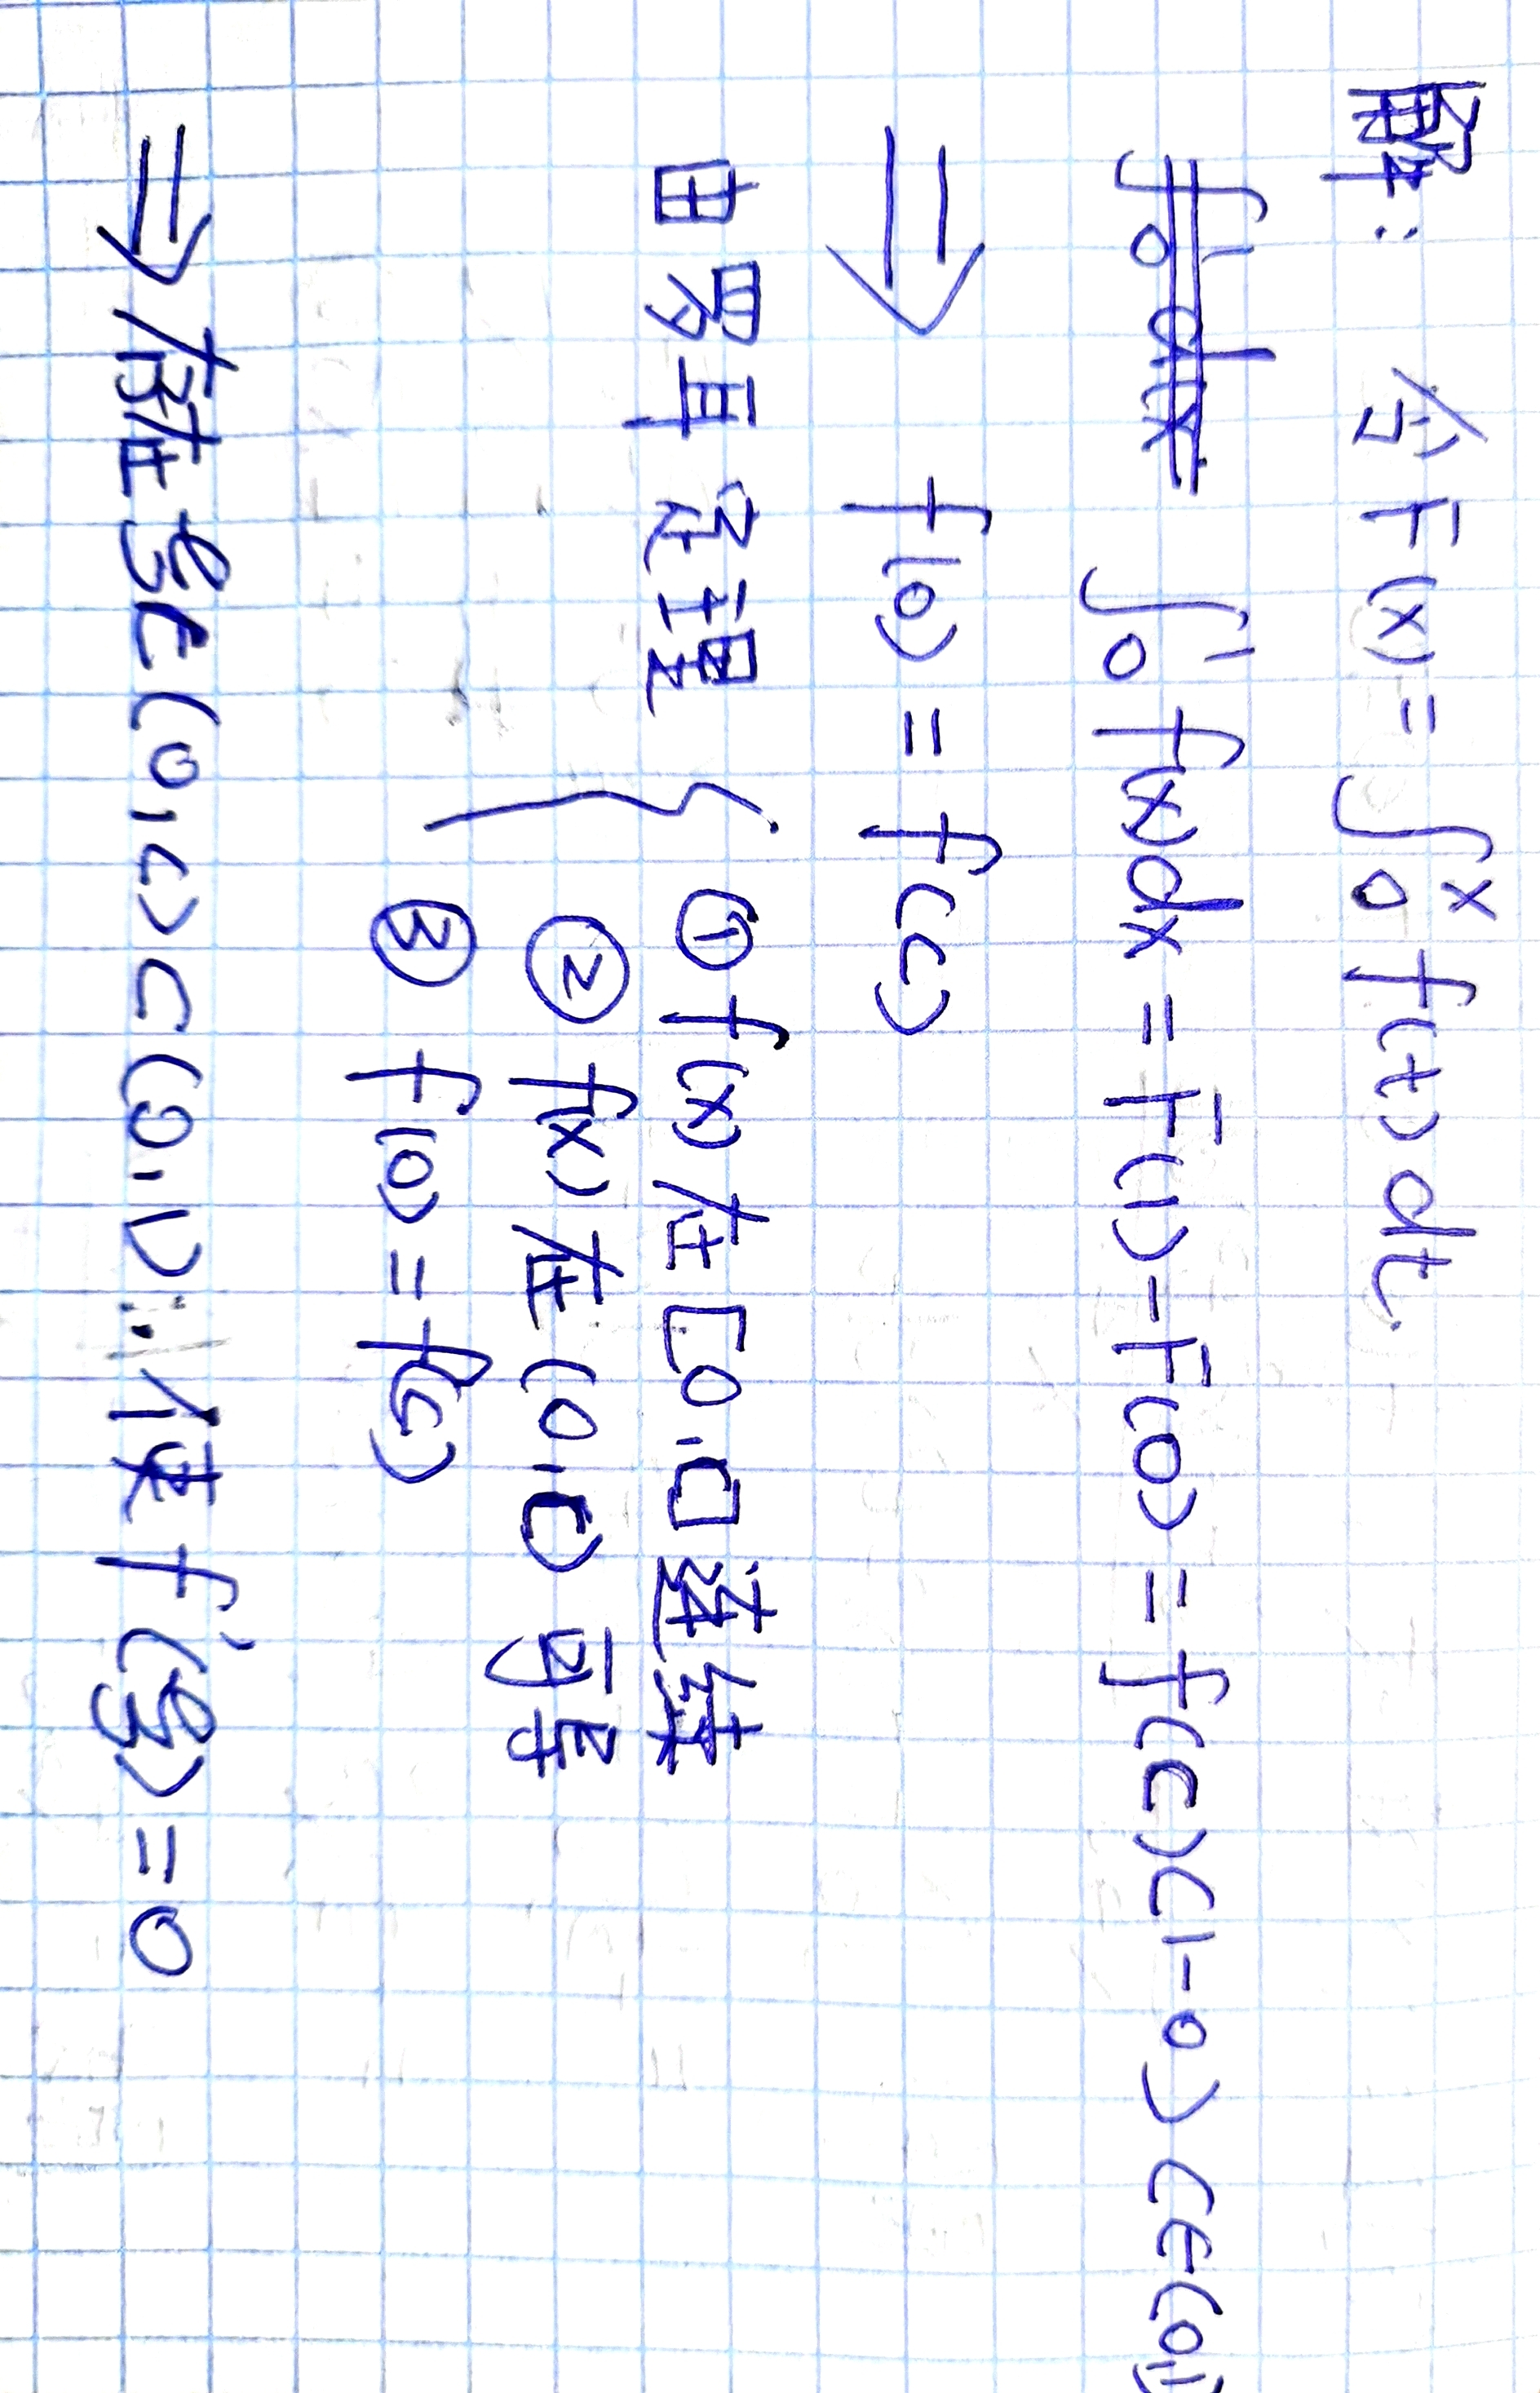 解: 令F(x) = ∫₀ˣ f(t) dt.
∫₀¹ f(x)dx = F(1) - F(0) = f(c)(1-0) c∈(0,1)
⇒ f(0) = f(c)
由罗尔定理 { ① f(x)在[0,c]连续
② f(x)在(0,c)可导
③ f(0) = f(c)
⇒ 存在ξ∈(0,c)⊂(0,1) 使f'(ξ)=0